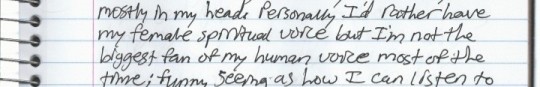 mostly in my head. Personally I'd rather have
my female spiritual voice but I'm not the
biggest fan of my human voice most of the
time; funny seeing as how I can listen to